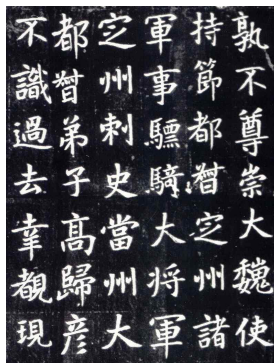 孰不尊崇大魏使
持節都督定州諸
軍事驃騎大将軍
定州刺史當州大
都督弟子高歸彦
不識過去幸覩現